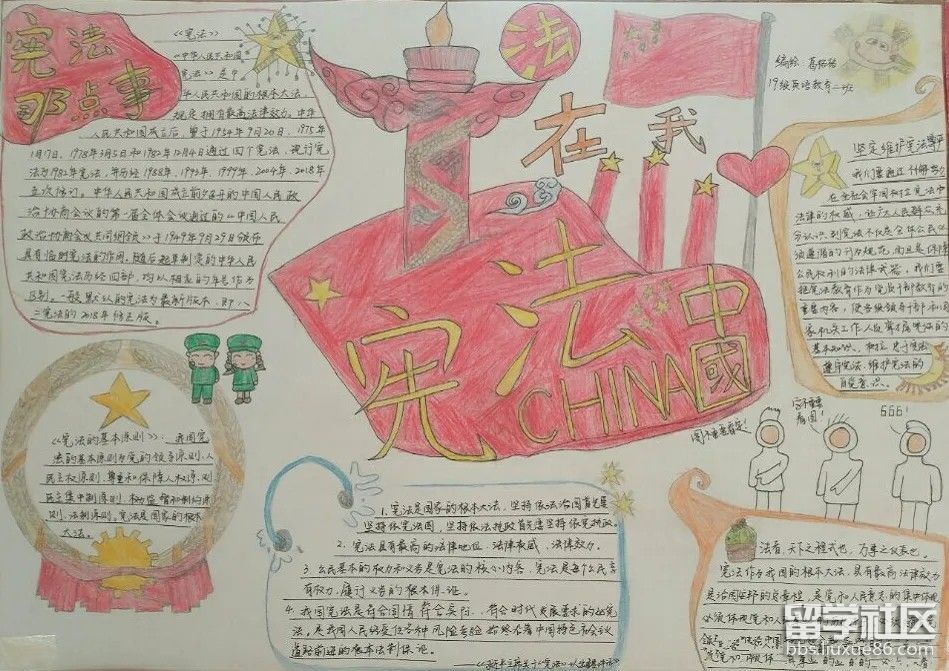 宪法
那点事
《宪法》
《中华人民共和国
宪法》是中
华人民共和国的根本大法,
规定拥有最高法律效力。中华
人民共和国成立后,曾于1954年9月20日、1975年
1月17日、1978年3月5日和1982年12月4日通过四个宪法,现行宪
法为1982年宪法,并历经1988年、1993年、1999年、2004年、2018年
五次修订。中华人民共和国成立前夕召开的中国人民政
治协商会议的第一届全体会议通过的《中国人民
政治协商会议共同纲领》于1949年9月29日颁布
具有临时宪法的作用,随后起草制定的中华人民
共和国宪法历经四部,均以相应的年号作为
区别。一般默认的宪法为最新版本,即八
二宪法的2018年修正版。
法
在我
宪法
中
國
CHINA
编绘:葛
19级英语教育二班
坚定维护宪法尊严
我们要通过
在全社会牢固树立宪法和
法律的权威,让广大人民群众充
分认识到宪法不仅是全体公民必
须遵循的行为规范,而且是保障
公民权利的法律武器,我们要
把宪法教育作为党员干部教育的
重要内容,使各级领导干部和国
家机关工作人员掌握宪法的
基本知识、树立忠于宪法、
遵守宪法、维护宪法的
自觉意识。
《宪法的基本原则》:我国宪
法的基本原则为党的领导原则、人
民主权原则、尊重和保障人权原则、
民主集中制原则、权力监督和制约原
则、法制原则。宪法是国家的根本
大法。
1.宪法是国家的根本大法,坚持依法治国首先是
坚持依宪治国,坚持依法执政首先是坚持依宪执政。
2.宪法具有最高的法律地位、法律权威、法律效力。
3.公民基本的权力和义务是宪法的核心内容,宪法是每个公民享
有权力、履行义务的根本保证。
4.我国宪法是符合国情、符合实际、符合时代发展要求的好宪
法,是我国人民经受住各种风险考验、始终沿着中国特色社会主义
道路前进的根本法制保证。
字不重要
看图!
图不重要看字!
6661
法者,天下之程式也,万事之仪表也。
宪法作为我国的根本大法,具有最高法律效力
是治国安邦的总章程,是党和人民意志的集中体现
留学社区
bbs.liuxue86.com